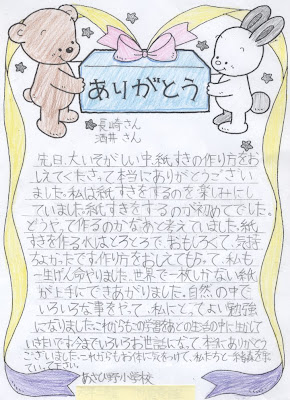 ありがとう
長崎さん
酒井さん
先日、大いそがしい中、紙すきの作り方をお
しえてくださって本当にありがとうござい
ました。私は紙すきをするのを楽しみにし
ていました。紙すきをするのが初めてでした。
どうやって作るのかなあと考えていました。紙
すきを作る水はとろとろで、おもしろくて、気持
ちよかったです。作り方をおしえてもらって、私も
一生けん命やりました。世界で一枚しかない紙
が上手にできあがりました。自然の中で
いろいろな事をやって、私にとってよい勉強
になりました。これからもこの学習をあとの生活の中に生かして
いきたいです。今までいろいろお世話になって、本当にありがとう
ございました。これからもお体に気をつけて、私たちと
て下さい。
あさひ野小学校